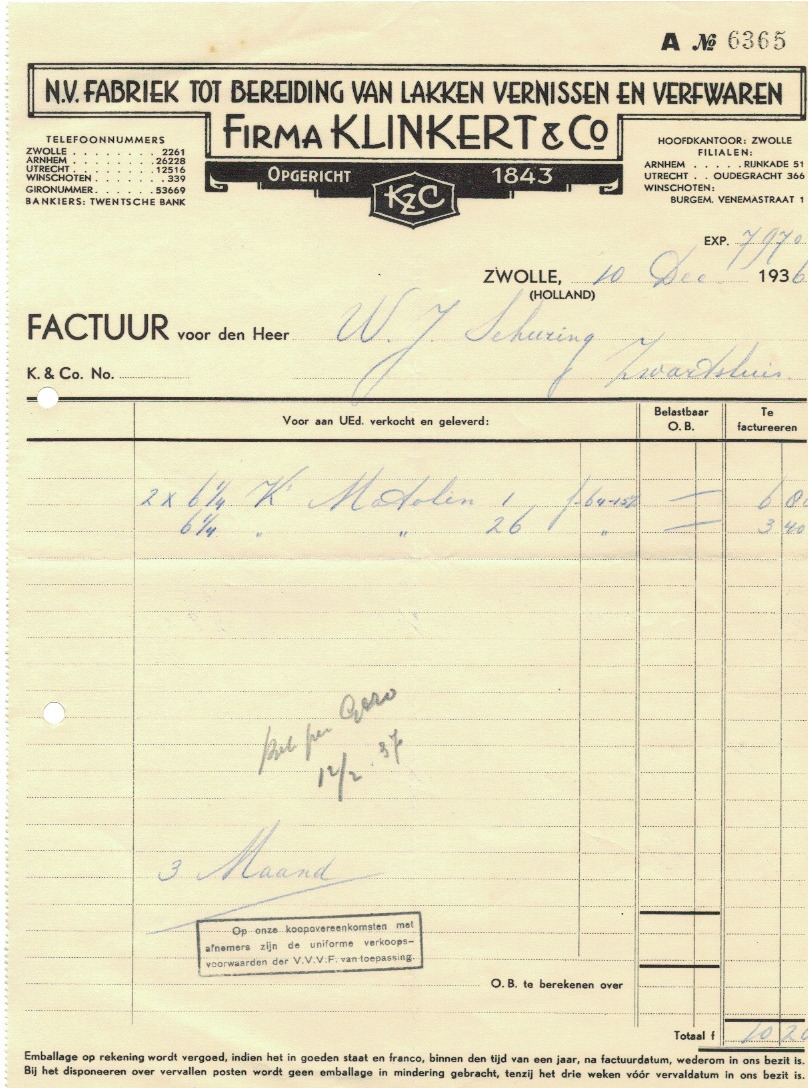 A № 6365
N.V. FABRIEK TOT BEREIDING VAN LAKKEN VERNISSEN EN VERFWAREN
FIRMA KLINKERT & Co
OPGERICHT 1843
KZC
TELEFOONNUMMERS
ZWOLLE . . . . . . . 2261
ARNHEM . . . . . . . 26228
UTRECHT . . . . . . . 12516
WINSCHOTEN . . . . . . . 339
GIRONUMMER . . . . . 53669
BANKIERS: TWENTSCHE BANK
HOOFDKANTOOR: ZWOLLE
FILIALEN:
ARNHEM . . . . . RIJNKADE 51
UTRECHT . . OUDEGRACHT 366
WINSCHOTEN:
BURGEM. VENEMASTRAAT 1
EXP. 7970
ZWOLLE, 10 Dec 1936
(HOLLAND)
FACTUUR voor den Heer W. J. Schuring
K. & Co. No. Zwartsluis
Voor aan UEd. verkocht en geleverd: Belastbaar O. B. Te factureeren
2 x 6¼ K° Matolin 1 f -64-15% — 6 80
6¼ " " 26 " — 3 40
per Giro
12/2 37
3 Maand
Op onze koopovereenkomsten met
afnemers zijn de uniforme verkoops-
voorwaarden der V.V.V.F. van toepassing.
O. B. te berekenen over
Totaal f 10 20
Emballage op rekening wordt vergoed, indien het in goeden staat en franco, binnen den tijd van een jaar, na factuurdatum, wederom in ons bezit is.
Bij het disponeeren over vervallen posten wordt geen emballage in mindering gebracht, tenzij het drie weken vóór vervaldatum in ons bezit is.